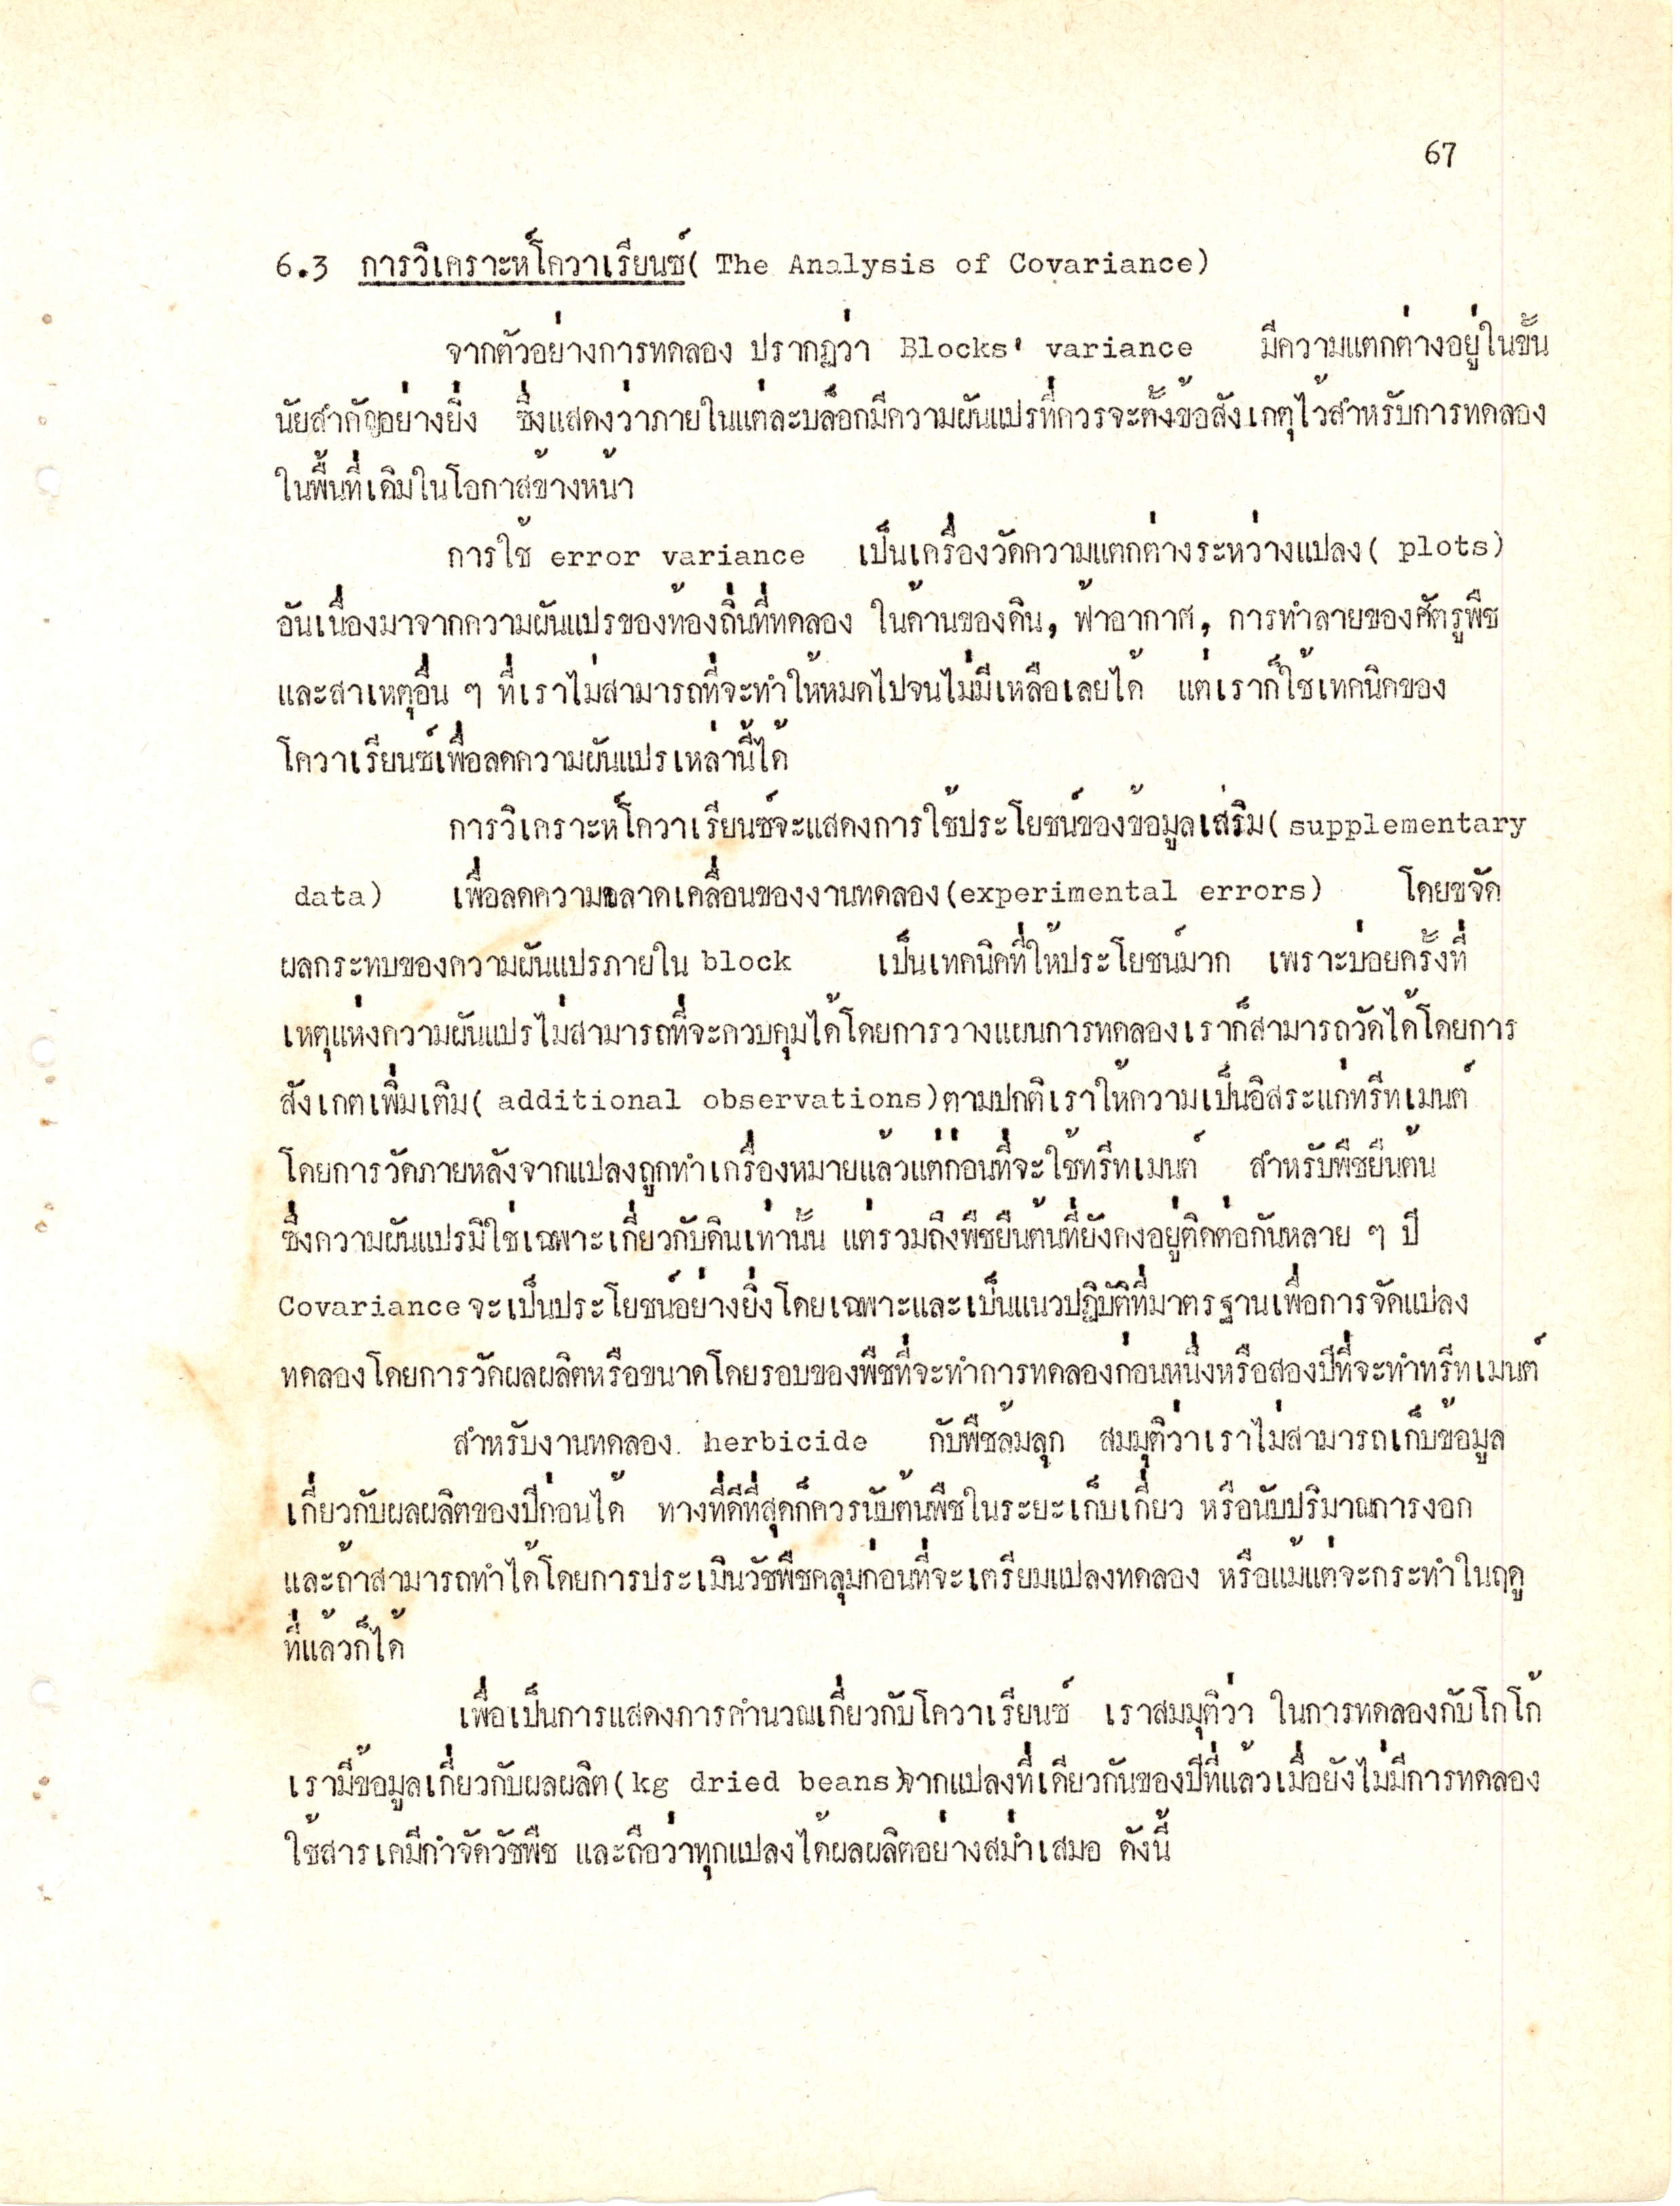 67
6.3 การวิเคราะห์โควาเรียนซ์( The Analysis of Covariance)
จากตัวอย่างการทดลอง ปรากฏว่า Blocks' variance มีความแตกต่างอยู่ในขั้น
นัยสำคัญอย่างยิ่ง ซึ่งแสดงว่าภายในแต่ละบล็อกมีความผันแปรที่ควรจะตั้งข้อสังเกตุไว้สำหรับการทดลอง
ในพื้นที่เดิมในโอกาสข้างหน้า
การใช้ error variance เป็นเครื่องวัดความแตกต่างระหว่างแปลง( plots)
อันเนื่องมาจากความผันแปรของท้องถิ่นที่ทดลอง ในด้านของดิน, ฟ้าอากาศ, การทำลายของศัตรูพืช
และสาเหตุอื่น ๆ ที่เราไม่สามารถที่จะทำให้หมดไปจนไม่มีเหลือเลยได้ แต่เราก็ใช้เทคนิคของ
โควาเรียนซ์เพื่อลดความผันแปรเหล่านี้ได้
การวิเคราะห์โควาเรียนซ์จะแสดงการใช้ประโยชน์ของข้อมูลเสริม( supplementary
data) เพื่อลดความคลาดเคลื่อนของงานทดลอง(experimental errors) โดยขจัด
ผลกระทบของความผันแปรภายใน block เป็นเทคนิคที่ให้ประโยชน์มาก เพราะบ่อยครั้งที่
เหตุแห่งความผันแปรไม่สามารถที่จะควบคุมได้โดยการวางแผนการทดลองเราก็สามารถวัดได้โดยการ
สังเกตเพิ่มเติม( additional observations)ตามปกติเราให้ความเป็นอิสระแก่ทรีทเมนต์
โดยการวัดภายหลังจากแปลงถูกทำเครื่องหมายแล้วแต่ก่อนที่จะใช้ทรีทเมนต์ สำหรับพืชยืนต้น
ซึ่งความผันแปรมิใช่เฉพาะเกี่ยวกับดินเท่านั้น แต่รวมถึงพืชยืนต้นที่ยังคงอยู่ติดต่อกันหลาย ๆ ปี
Covariance จะเป็นประโยชน์อย่างยิ่งโดยเฉพาะและเป็นแนวปฏิบัติที่มาตรฐานเพื่อการจัดแปลง
ทดลองโดยการวัดผลผลิตหรือขนาดโดยรอบของพืชที่จะทำการทดลองก่อนหนึ่งหรือสองปีที่จะทำทรีทเมนต์
สำหรับงานทดลอง herbicide กับพืชล้มลุก สมมุติว่าเราไม่สามารถเก็บข้อมูล
เกี่ยวกับผลผลิตของปีก่อนได้ ทางที่ดีที่สุดก็ควรนับต้นพืชในระยะเก็บเกี่ยว หรือนับปริมาณการงอก
และถ้าสามารถทำได้โดยการประเมินวัชพืชคลุมก่อนที่จะเตรียมแปลงทดลอง หรือแม้แต่จะกระทำในฤดู
ที่แล้วก็ได้
เพื่อเป็นการแสดงการคำนวณเกี่ยวกับโควาเรียนซ์ เราสมมุติว่า ในการทดลองกับโกโก้
เรามีข้อมูลเกี่ยวกับผลผลิต(kg dried beans)จากแปลงที่เดียวกันของปีที่แล้วเมื่อยังไม่มีการทดลอง
ใช้สารเคมีกำจัดวัชพืช และถือว่าทุกแปลงได้ผลผลิตอย่างสม่ำเสมอ ดังนี้